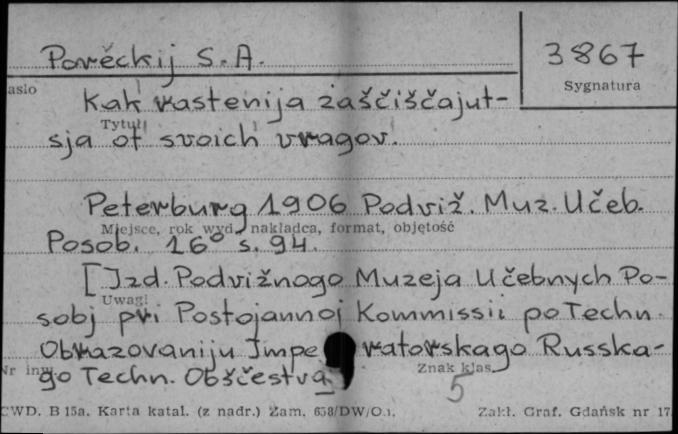 Porěckij S. A.
3867
asło
Sygnatura
Kak rastenija zaščiščajut-
Tytuł
sja ot svoich vragov.
Peterburg 1906 Podviž. Muz. Učeb.
Miejsce, rok wyd., nakładca, format, objętość
Posob. 16° s. 94.
[Izd. Podvižnogo Muzeja Učebnych Po-
Uwagi
sobj pri Postojannoj Kommissii po Techn.
Obrazovaniju Impe ratorskago Russka-
Nr inw. Znak klas.
go Techn. Obščestva
5
CWD. B 15a. Karta katal. (z nadr.) Zam. 658/DW/O.
Zakł. Graf. Gdańsk nr 17